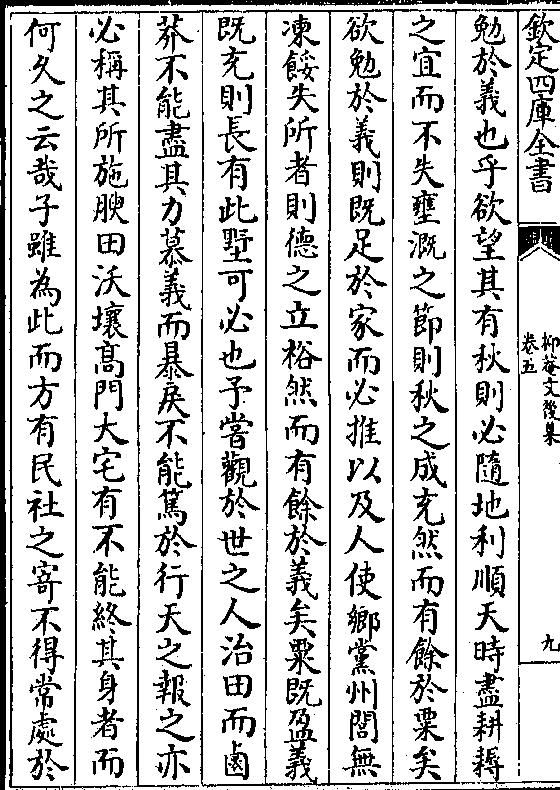 欽定四庫全書
抑菴文後集
卷五
九
勉於義也乎欲望其有秋則必隨地利順天時盡耕耨
之宜而不失壅溉之節則秋之成充然而有餘於粟矣
欲勉於義則既足於家而必推以及人使鄉黨州閭無
凍餒失所者則德之立裕然而有餘於義矣粟既盈義
既充則長有此墅可必也予嘗觀於世之人治田而鹵
莽不能盡其力慕義而暴戾不能篤於行天之報之亦
必稱其所施腴田沃壤高門大宅有不能終其身者而
何久之云哉子雖為此而方有民社之寄不得常處於